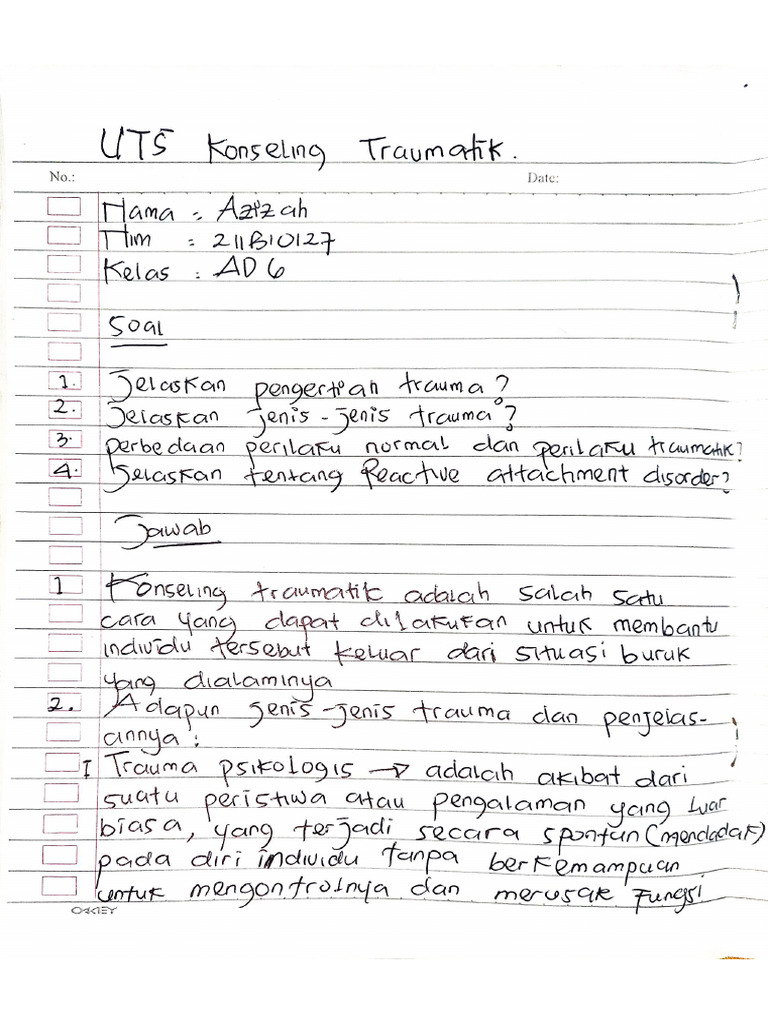 UTS Konseling Traumatik.
No.: Date:
Nama : Azizah
Nim : 211B10127
Kelas : AD 6
Soal
1. Jelaskan pengertian trauma?
2. Jelaskan jenis-jenis trauma?
3. perbedaan perilaku normal dan perilaku traumatik?
4. Jelaskan tentang Reactive attachment disorder?
Jawab
1 Konseling traumatik adalah salah satu
cara yang dapat dilakukan untuk membantu
individu tersebut keluar dari situasi buruk
yang dialaminya
2. Adapun jenis-jenis trauma dan penjelas-
annya :
I Trauma psikologis → adalah akibat dari
suatu peristiwa atau pengalaman yang luar
biasa, yang terjadi secara spontan (mendadak)
pada diri individu tanpa berkemampuan
untuk mengontrolnya dan merusak fungsi
OAKLEY